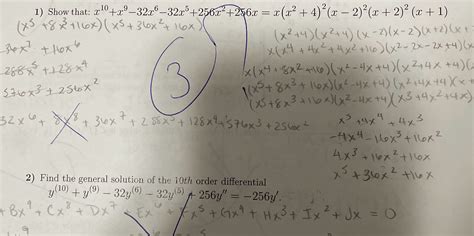 1) Show that: x^10+x^9−32x^6−32x^5+256x^2+256x = x(x^2+4)^2(x−2)^2(x+2)^2(x+1)
(x^5+8x^3+16x)(x^5+36x^2+16x)
(x^2+4)(x^2+4)(x-2)(x-2)(x+2)(x+
x(x^4+4x^2+4x^2+16)(x^2-2x-2x+4)(x
36x^7+16x^6
288x^5+128x^4
576x^3+256x^2
3
x(x^4+8x^2+16)(x^2-4x+4)(x^2+4x+4)(
(x^5+8x^3+16x)(x^2-4x+4)(x^2+4x+4)(x
(x^5+8x^3+16x)(x^2-4x+4)(x^3+4x^2+4x)
32x^6+8x^8+36x^7+288x^5+128x^4+576x^3+256x^2
x^5+4x^4+4x^3
-4x^4-16x^3+16x^2
4x^3+16x^2+16x
x^5+36x^2+16x
2) Find the general solution of the 10th order differential
y^(10)+y^(9)−32y^(6)−32y^(5)+256y″=−256y′.
+Bx^9+Cx^8+Dx^7+Ex^6+Fx^5+Gx^4+Hx^3+Ix^2+Jx=0